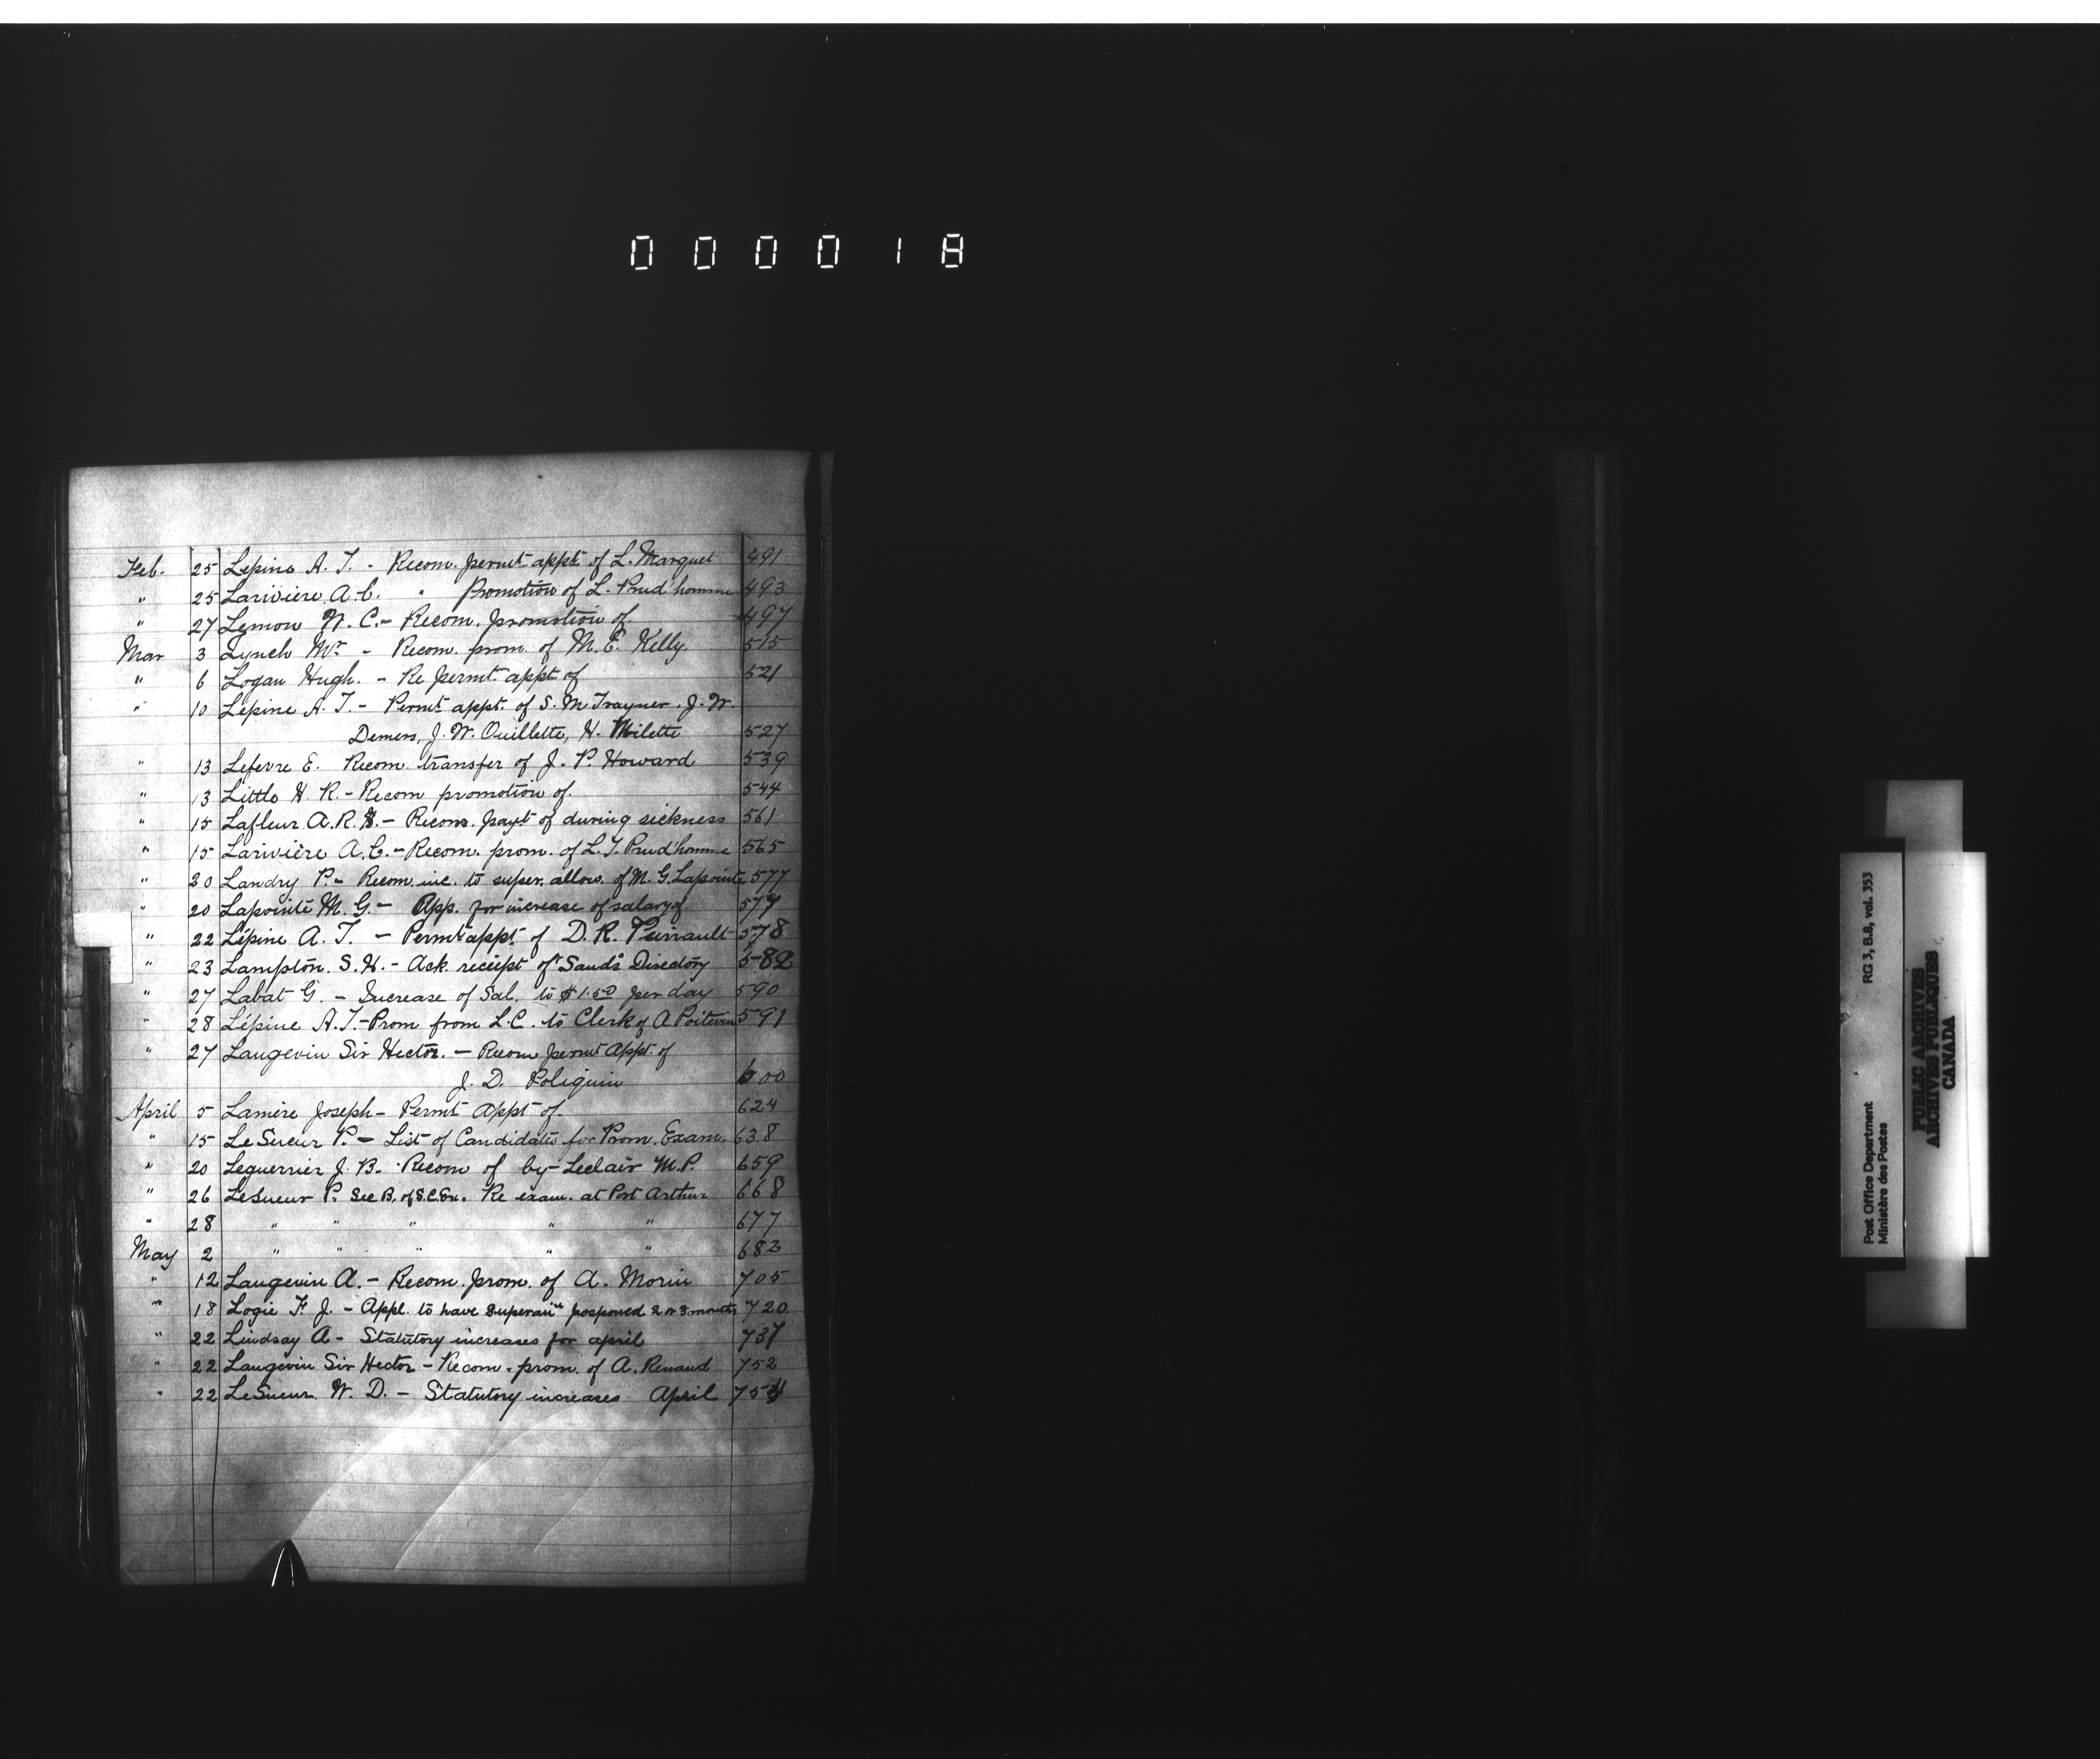 000018
Feb. 25 Lépine A. T. - Recom. permt appt of L. Marquet 491
" 25 Larivière A. C. " promotion of L. Prud'homme 493
" 27 Lemon W. C. - Recom. promotion of. 497
Mar 3 Lynch Mr. - Recom. prom. of M. E. Kelly. 515
" 6 Logan Hugh. - Re permt appt of 521
" 10 Lépine A. T. - Permt appt. of S. M. Trayner. J. W.
Demers, J. W. Ouillette, H. Milette 527
" 13 Lefevre E. Recom. transfer of J. P. Howard 539
" 13 Little H. R. - Recom promotion of. 544
" 15 Lafleur A. R. - Recom. payt of during sickness 561
" 15 Larivière A. C. - Recom. prom. of L. J. Prud'homme 565
" 20 Landry P. - Recom. inc. to super. allow. of M. G. Lapointe 577
" 20 Lapointe M. G. - App. for increase of salary of. 577
" 22 Lépine A. T. - Permt appt of D. R. Perrault 578
" 23 Lampton. S. H. - Ack. receipt of "Sands Directory 582
" 27 Labat G. - Increase of Sal. to $1.50 per day 590
" 28 Lépine A. T. - Prom from L.C. to Clerk of A Poitevin 591
" 27 Langevin Sir Hector. - Recom permt Appt. of
J. D. Poliquin 600
April 5 Lamère Joseph - Permt Appt of. 624
" 15 LeSueur P. - List of Candidates for Prom. Exam. 638
" 20 Leguerrier J. B. - Recom of by - Leclair M.P. 659
" 26 LeSueur P. Sec B. of S.C. Ex. Re exam. at Port Arthur 668
" 28 " " " " " 677
May 2 " " " " " 682
" 12 Langevin A. - Recom. prom. of A. Morin 705
" 18 Logie F. J. - Appl. to have Superant posponed 2 or 3 months 720.
" 22 Lindsay A - Statutory increases for april 737
" 22 Langevin Sir Hector - Recom. prom. of A. Renaud 752
" 22 LeSueur. W. D. - Statutory increases April 754
Post Office Department RG 3, B.8, vol. 353
Ministère des Postes
PUBLIC ARCHIVES
ARCHIVES PUBLIQUES
CANADA